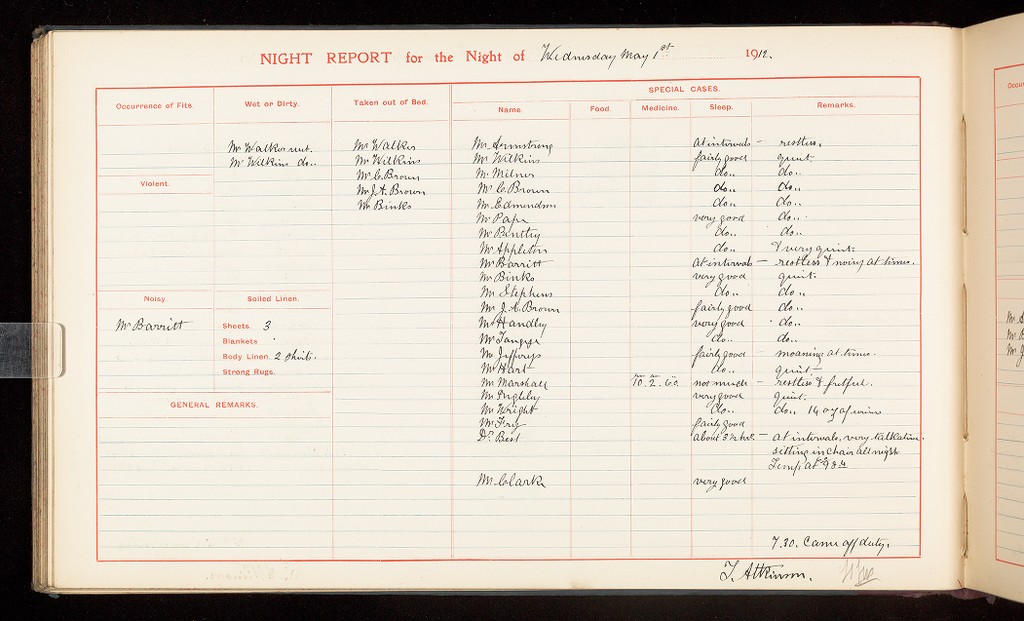 NIGHT REPORT for the Night of Wednesday May 1st 1912.
SPECIAL CASES.
Occurrence of Fits. Wet or Dirty. Taken out of Bed. Name. Food. Medicine. Sleep. Remarks.
Mr Walker wet. Mr Walker Mr Armstrong At intervals – restless.
Mr Wilkins do.. Mr Wilkins Mr Wilkins fairly good quiet
Mr C. Brown Mr Milner do.. do..
Violent. Mr J. A. Brown Mr C. Brown do.. do..
Mr Binks Mr Edmundson do.. do..
Mr Pape very good do..
Mr Bentley do.. do..
Mr Appleton do.. & very quiet.
Mr Barritt At intervals – restless & noisy at times.
Mr Binks very good quiet.
Mr Stephens do.. do..
Noisy. Soiled Linen. Mr J. A. Brown fairly good do..
Mr Barritt Sheets. 3 Mr Handley very good do..
Blankets Mr do.. do..
Body Linen. 2 shirts. Mr Jefferys fairly good – moaning at times.
Strong Rugs. Mr Hart do.. quiet.–
Mr Marshall 10. 2. 60. not much – restless & fretful.
Mr very good quiet.
GENERAL REMARKS. Mr Wright do.. do.. 14 oz of urine
Mr Fry fairly good
Dr. Best about 3½ hrs. – at intervals, very talkative.
sitting in chair all night
Temp. at 98.4
Mr Clarke very good
7.30. Came off duty.
T. Atkinson.